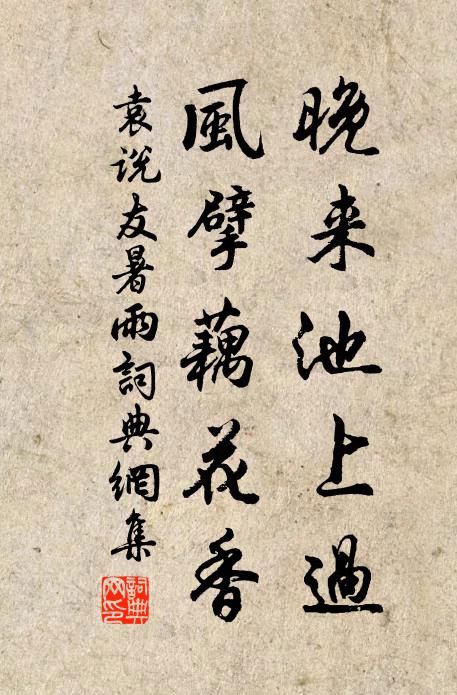 晚来池上過
風擘藕花香
袁说友暑雨詞典網集
詞典網印